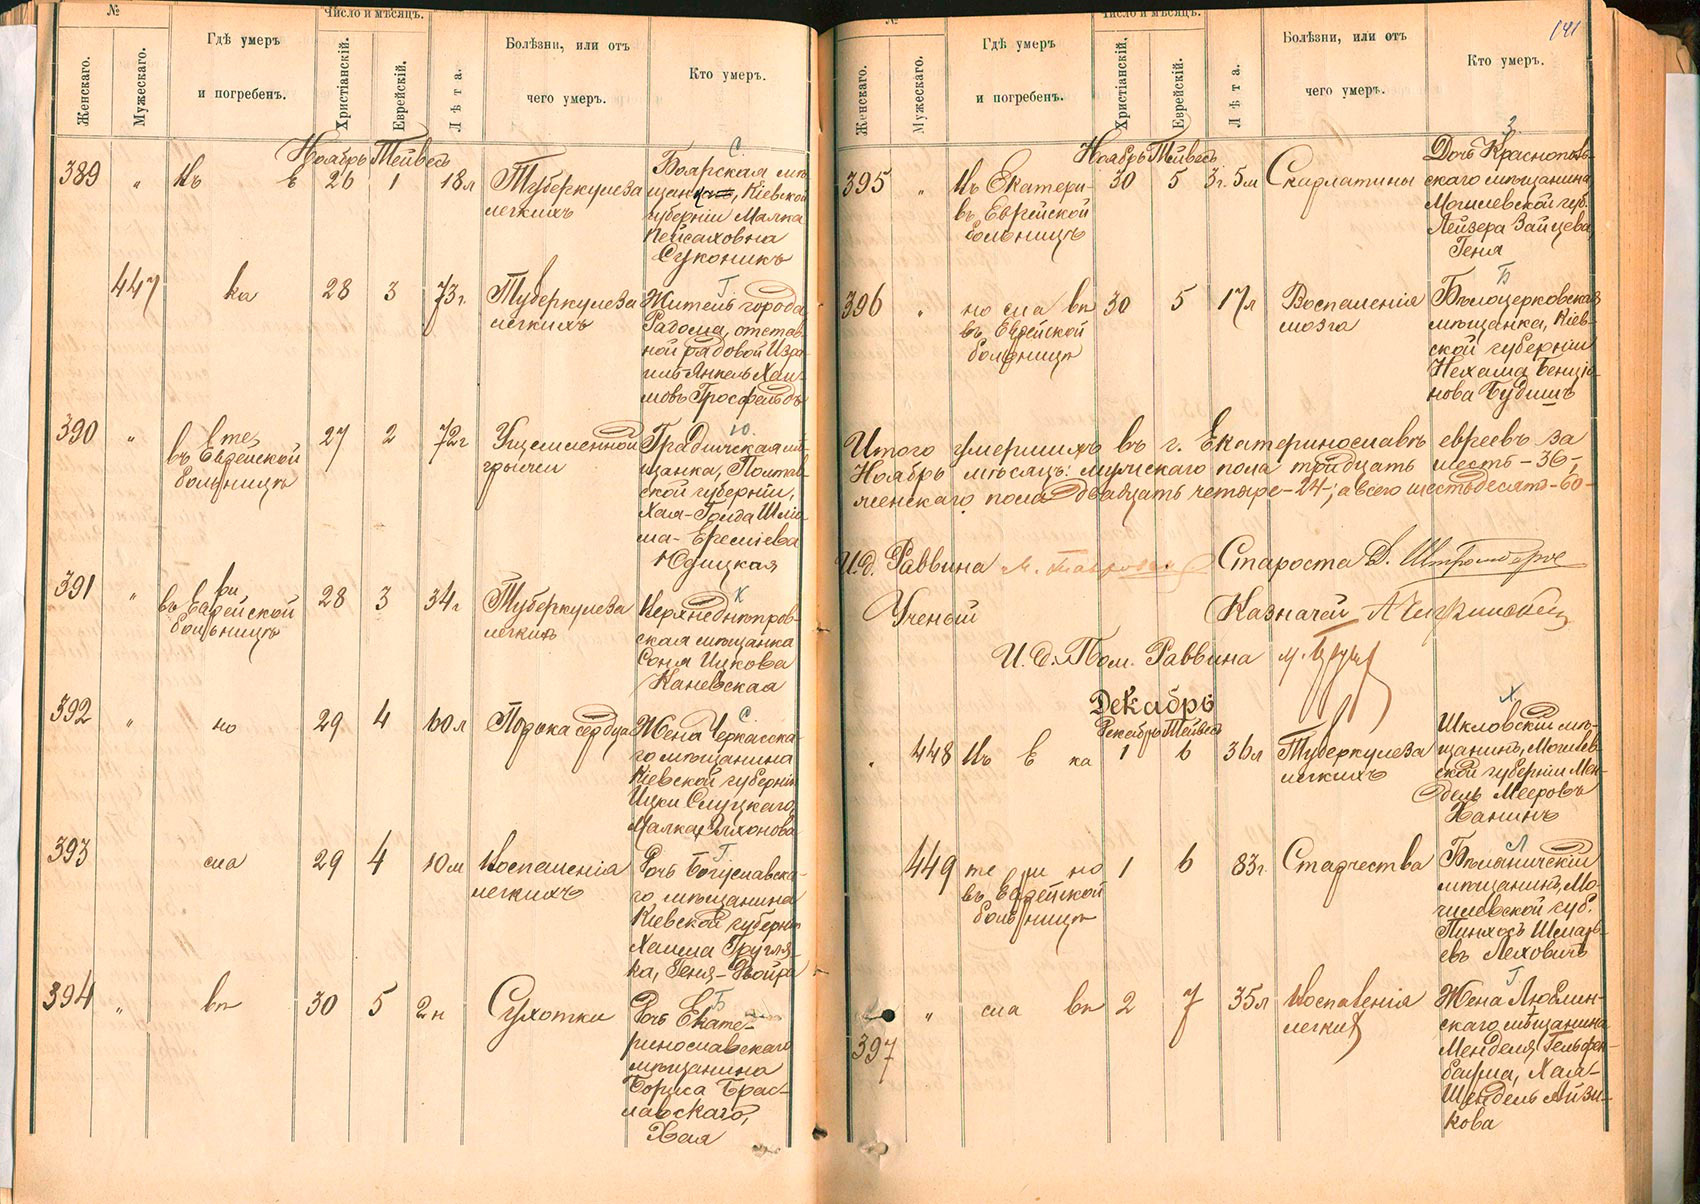 №
Число и мѣсяцъ.
Женскаго.
Мужескаго.
Гдѣ умеръ
и погребенъ.
Христіанскій.
Еврейскій.
Лѣта.
Болѣзни, или отъ
чего умеръ.
Кто умеръ.
Ноябрь Тейвесъ
389 " Въ Е 26 1 18л Туберкулеза
легкихъ
С
Боярская мѣ-
щанка, Кіевской
губерніи Малка
Пейсаховна
Суконикъ
447 ка 28 3 73г. Туберкулеза
легкихъ
Г
Житель города
Радома, отстав-
ной рядовой Изра-
иль-Янкель Хаи-
мовъ Гросфельдъ
390 " те
въ Еврейской
больницѣ
27 2 72г Ущемленной
грыжи
Ю
Градижская мѣ-
щанка, Полтав-
ской губерніи,
Хая-Голда Шліо-
ма-Еремѣева
Юдицкая
391 " ри
въ Еврейской
больницѣ
28 3 34г Туберкулеза
легкихъ
К
Верхнеднѣпров-
ская мѣщанка
Соня Ицкова
Каневская
392 " но 29 4 60л Порока сердца
С
Жена Черкасска-
го мѣщанина
Кіевской губерніи
Ицки Слуцкаго,
Малка Элхонова
393 сла 29 4 10м Воспаленія
легкихъ
Г
Дочь Богуславска-
го мѣщанина
Кіевской губерніи
Хаима Гругля-
ка, Геня-Двойра
394 " вѣ 30 5 2н Сухотки
Б
Дочь Екате-
ринославскаго
мѣщанина
Бориса Брас-
лавскаго,
Хая
141
№
Число и мѣсяцъ.
Женскаго.
Мужескаго.
Гдѣ умеръ
и погребенъ.
Христіанскій.
Еврейскій.
Лѣта.
Болѣзни, или отъ
чего умеръ.
Кто умеръ.
Ноябрь Тейвесъ
395 " Въ Екатери-
въ Еврейской
больницѣ
30 5 3г. 5м Скарлатины
З
Дочь Краснополь-
скаго мѣщанина
Могилевской губ.
Лейзера Зайцева,
Геня
396 " но сла вѣ
въ Еврейской
больницѣ
30 5 17л Воспаленія
мозга
Б
Бѣлоцерковская
мѣщанка, Кіев-
ской губерніи
Нехама Бенціо-
нова Будишъ
Итого умершихъ въ г. Екатеринославѣ евреевъ за
Ноябрь мѣсяцъ: мужскаго пола тридцать шесть-36-,
женскаго пола двадцать четыре-24-; а всего шестьдесятъ-60-
И.д. Раввина Староста Д.
Ученый Казначей А
И.д. Пом. Раввина
Декабрь
Декабрь Тейвесъ
448 Въ Е ка 1 6 36л Туберкулеза
легкихъ
Х
Шкловскій мѣ-
щанинъ, Могилев-
ской губерніи Мен-
дель Мееровъ
Ханинъ
449 те ри но
въ Еврейской
больницѣ
1 6 83г. Старчества
Л
Бѣлыничскій
мѣщанинъ, Мо-
гилевской губ.
Пинхосъ Шмарь-
евъ Леховичъ
397
" сла вѣ 2 7 35л Воспаленія
легкихъ
Г
Жена Люблин-
скаго мѣщанина
Менделя Гельфен-
баума, Хая-
Шендель Айзи-
кова